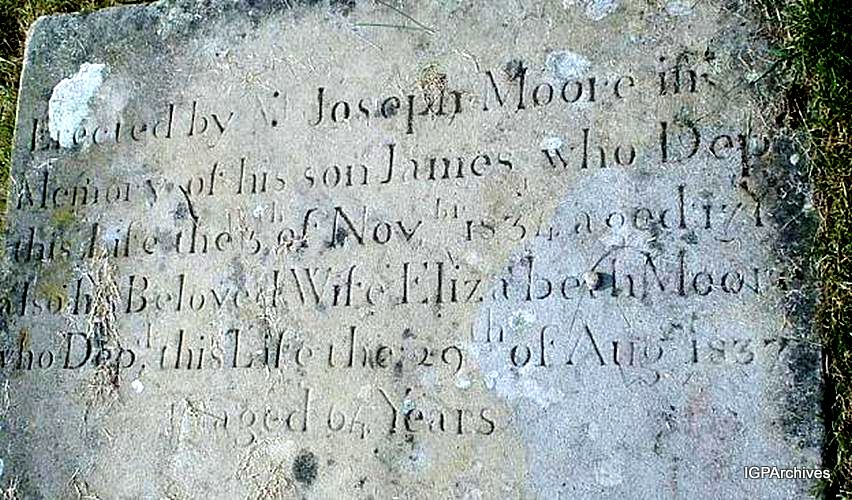 Erected by Mr Joseph Moore in
Memory of his son James who Dep
this Life the 3th of Novbr 1834 aged 17 Y
also his Beloved Wife Elizabeth Moore
who Depd this Life the 29th of Augt 1837
aged 64 Years
IGPArchives